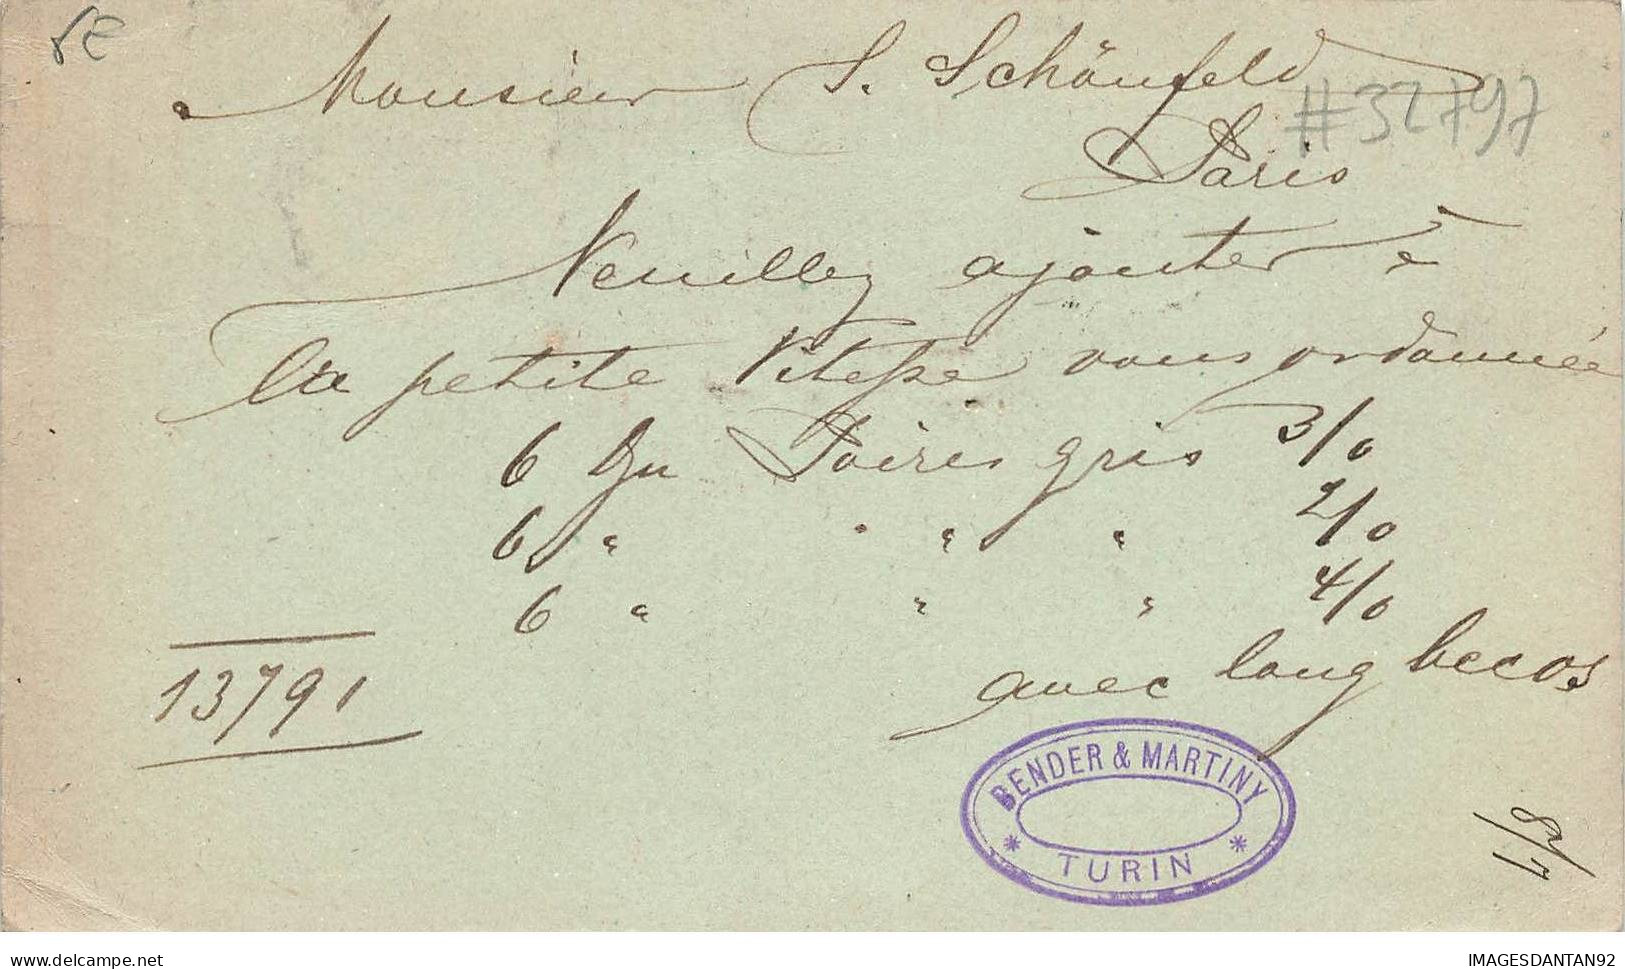 5E
Monsieur S. Schönfeld
#32797
Paris
Veuillez ajouter à
la petite Vitesse vous ordonnée
6 Poires gris 3/0
6 " " " " 2/0
6 " " " 4/0
13791
avec long becos
BENDER & MARTINY
* TURIN *
delcampe.net
IMAGESDANTAN92